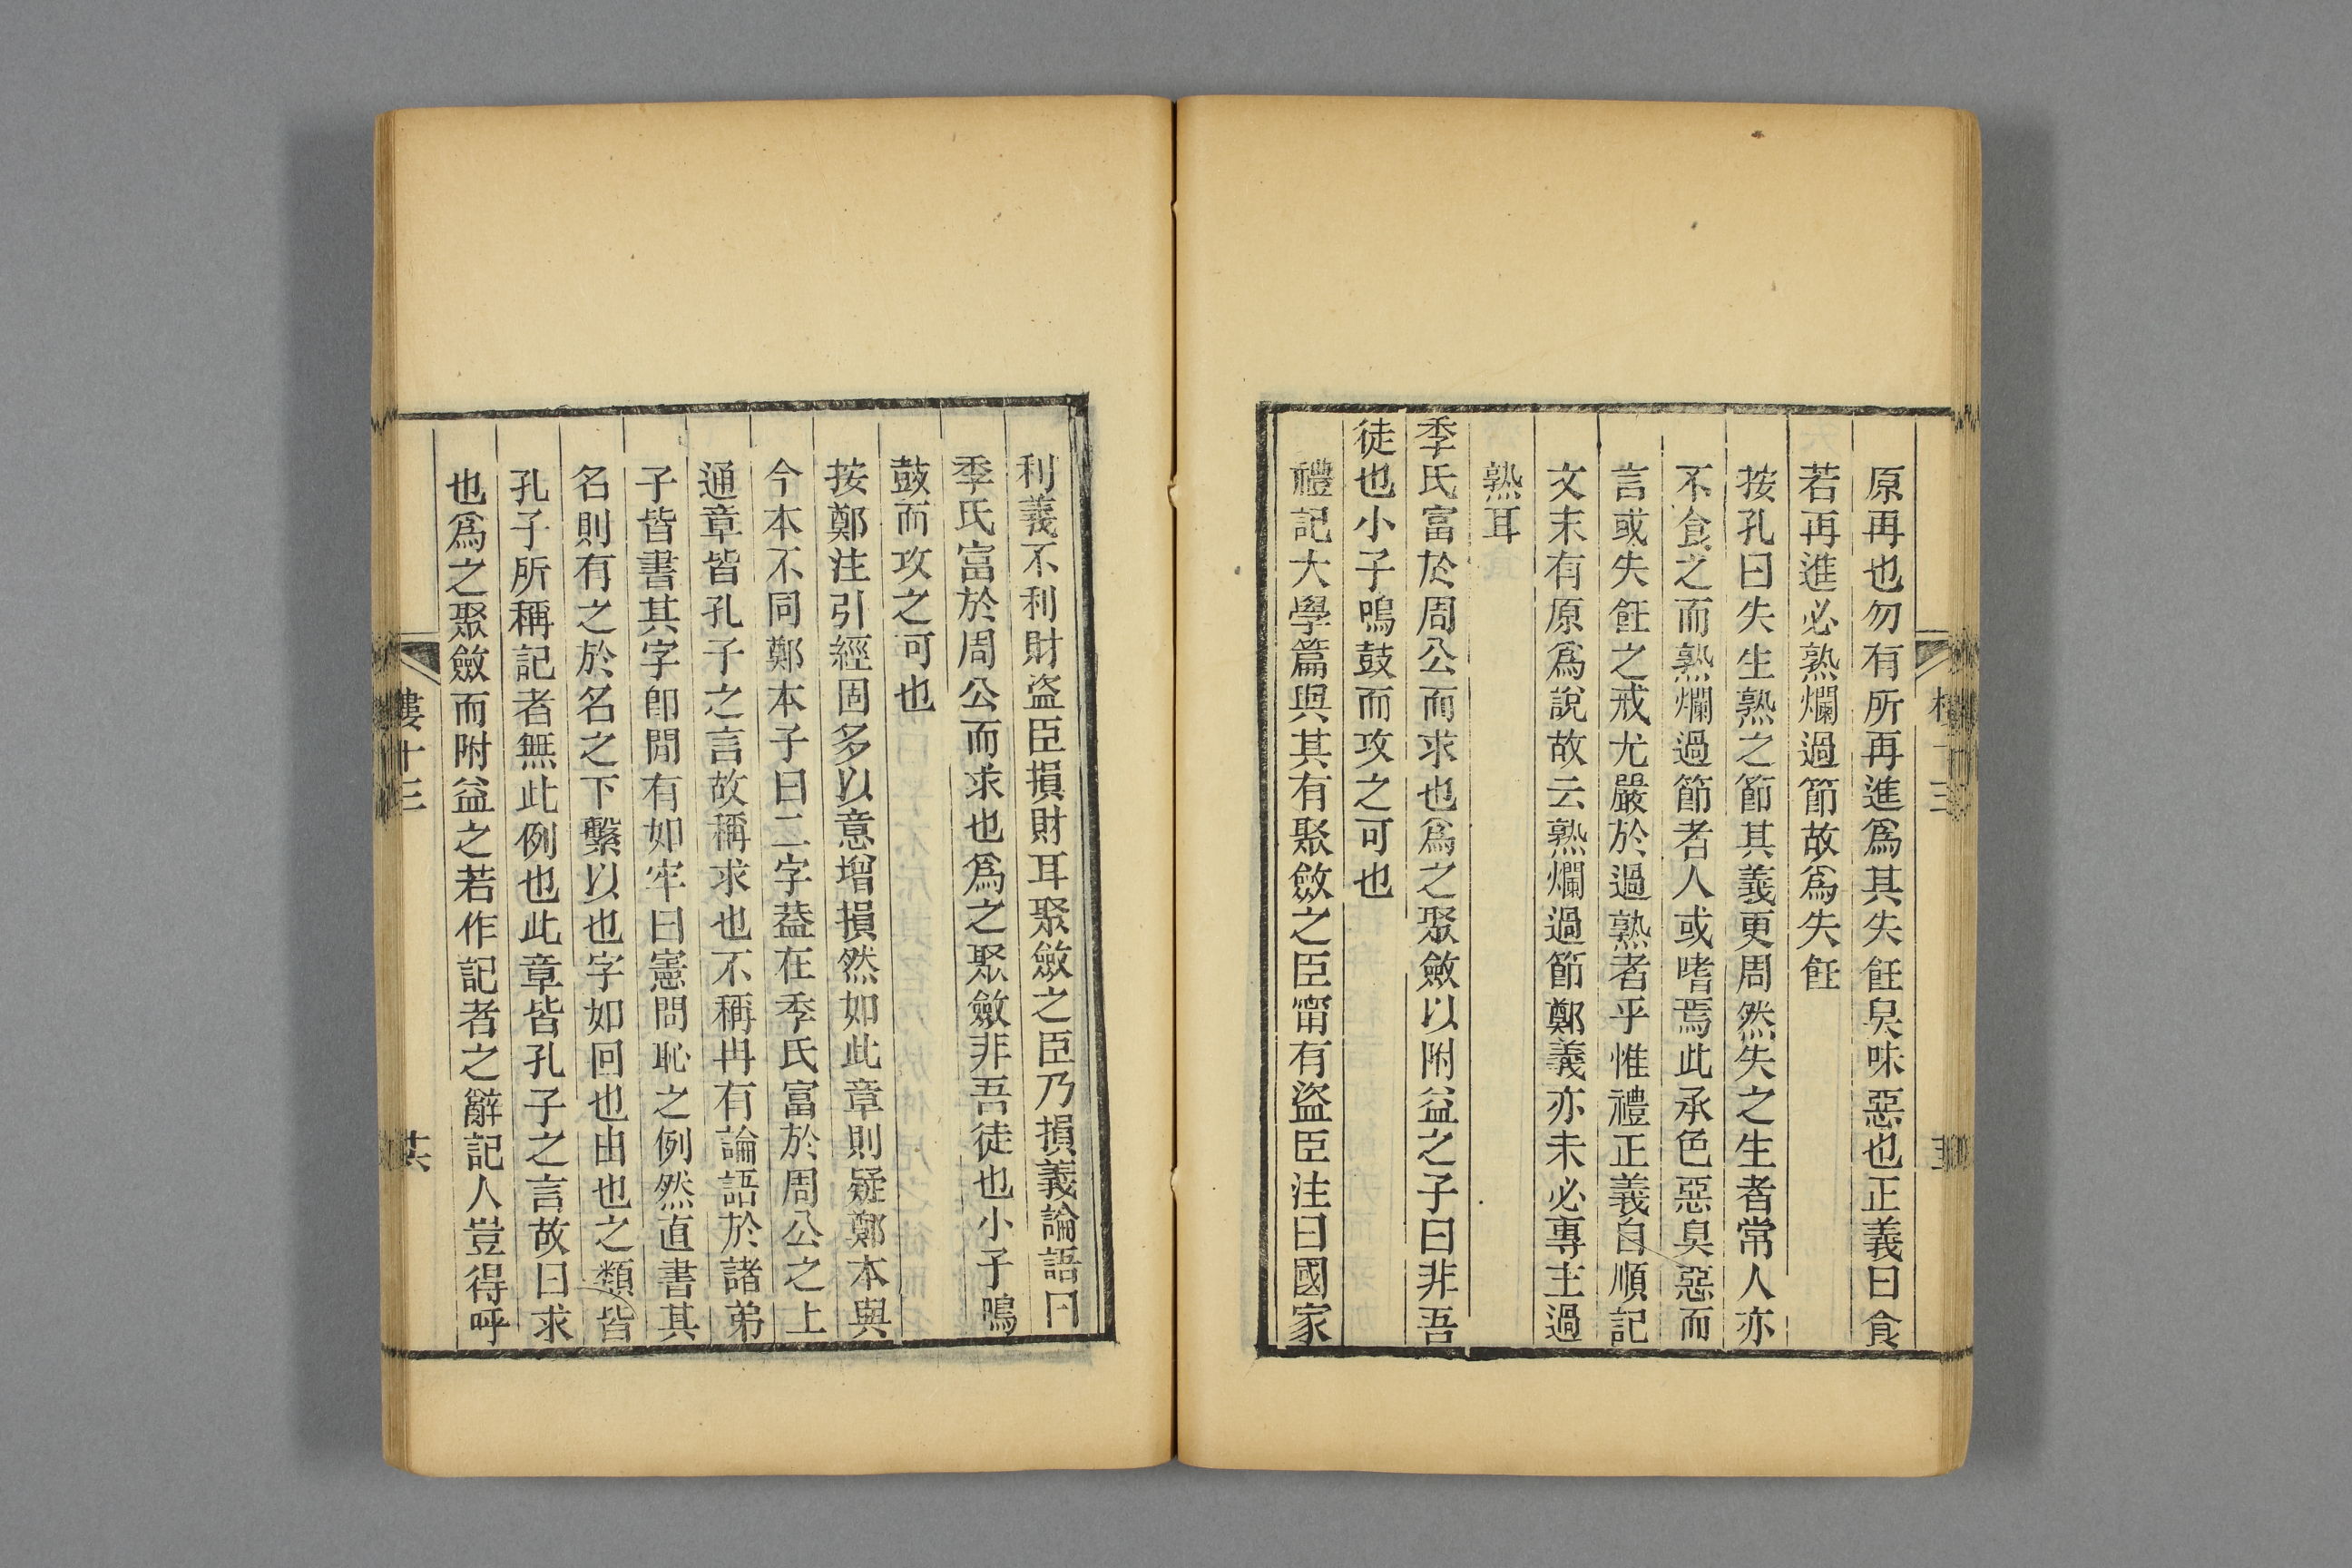 原再也勿有所再進爲其失飪臭味惡也正義曰食
若再進必熟爛過節故爲失飪
按孔曰失生熟之節其義更周然失之生者常人亦
不食之而熟爛過節者人或嗜焉此承色惡臭惡而
言或失飪之戒尤嚴於過熟者乎惟禮正義自順記
文末有原爲說故云熟爛過節鄭義亦未必專主過
熟耳
季氏富於周公而求也爲之聚斂以附益之子曰非吾
徒也小子鳴鼓而攻之可也
禮記大學篇與其有聚斂之臣甯有盜臣注曰國家
利義不利財盜臣損財耳聚斂之臣乃損義論語曰
季氏富於周公而求也爲之聚斂非吾徒也小子鳴
鼓而攻之可也
按鄭注引經固多以意增損然如此章則疑鄭本與
今本不同鄭本子曰二字葢在季氏富於周公之上
通章皆孔子之言故稱求也不稱冉有論語於諸弟
子皆書其字卽閒有如牢曰憲問恥之例然直書其
名則有之於名之下繫以也字如回也由也之類皆
孔子所稱記者無此例也此章皆孔子之言故曰求
也爲之聚斂而附益之若作記者之辭記人豈得呼
樓十三